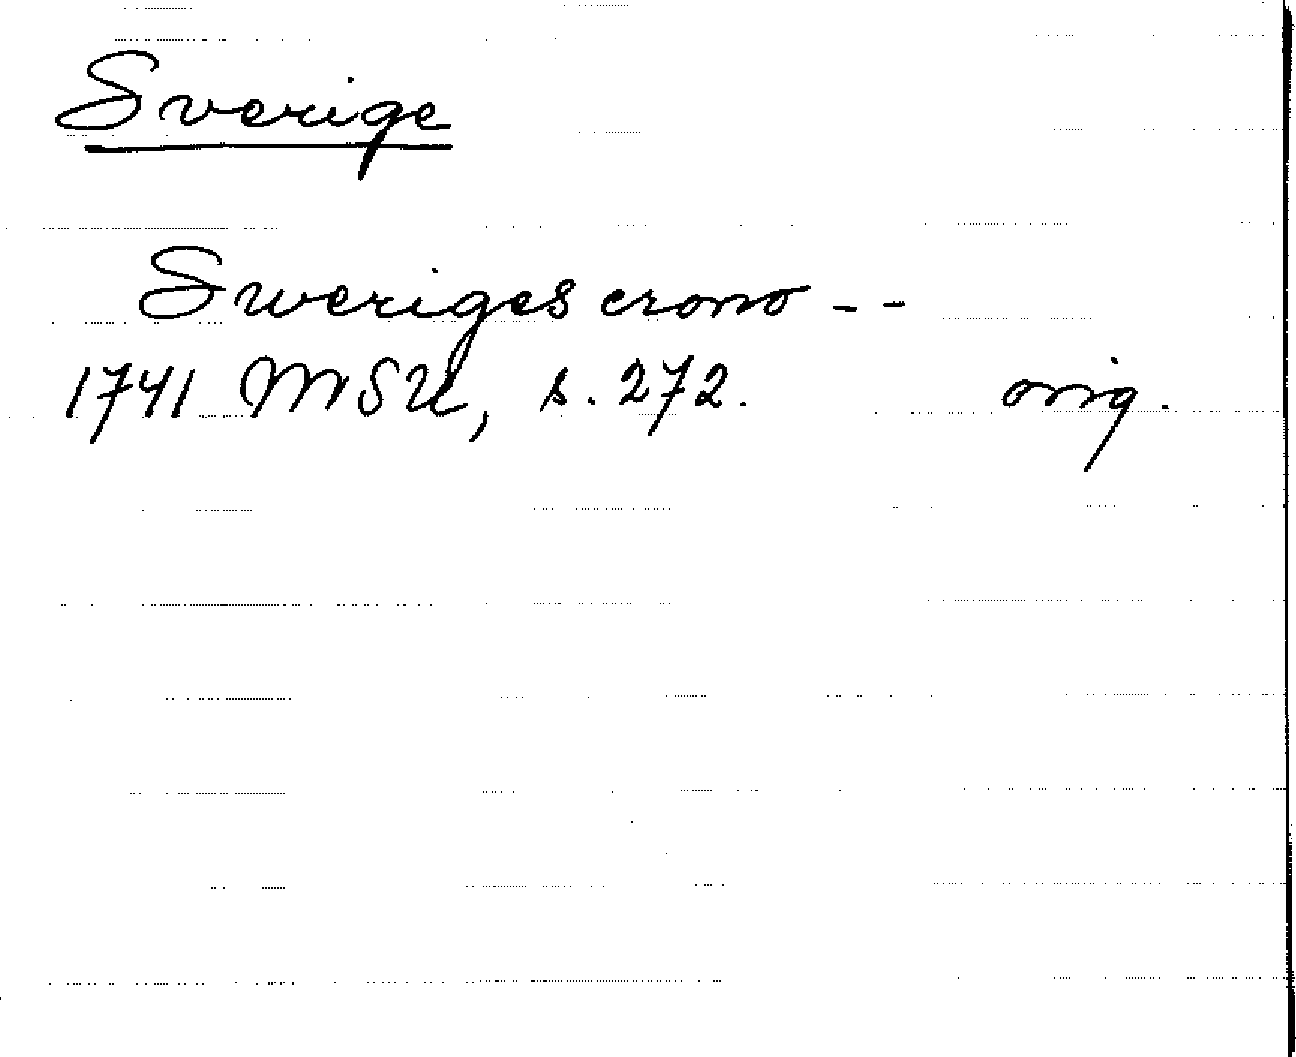 Sverige
Sweriges crono - -
1741 MSU, s. 272. orig.